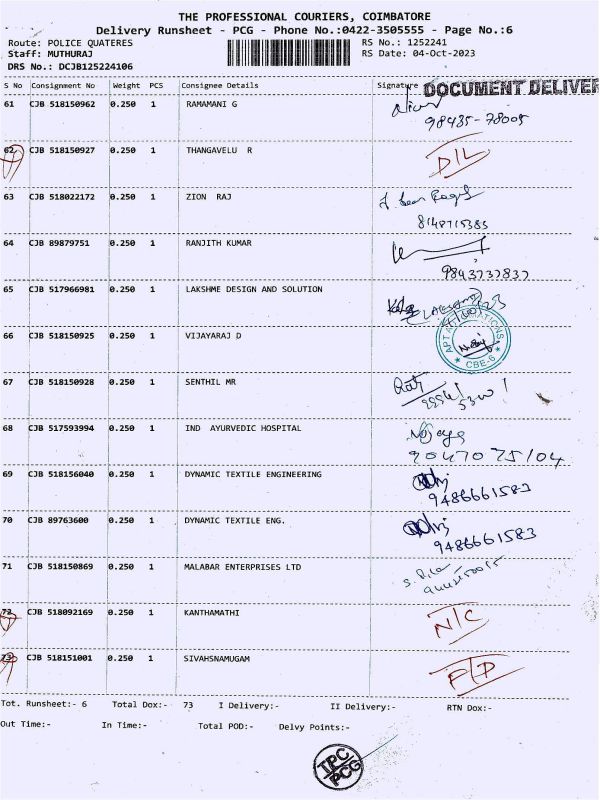 THE PROFESSIONAL COURIERS, COIMBATORE
Delivery Runsheet - PCG - Phone No.:0422-3505555 - Page No.:6
Route: POLICE QUATERES RS No.: 1252241
Staff: MUTHURAJ RS Date: 04-Oct-2023
DRS No.: DCJB125224106
S No Consignment No Weight PCS Consignee Details Signature DOCUMENT DELIVER
61 CJB 518150962 0.250 1 RAMAMANI G
98435-78005
62 CJB 518150927 0.250 1 THANGAVELU R D/L
63 CJB 518022172 0.250 1 ZION RAJ
8148715385
64 CJB 89879751 0.250 1 RANJITH KUMAR
9843737837
65 CJB 517966981 0.250 1 LAKSHME DESIGN AND SOLUTION
66 CJB 518150925 0.250 1 VIJAYARAJ D
CBE-6
67 CJB 518150928 0.250 1 SENTHIL MR
68 CJB 517593994 0.250 1 IND AYURVEDIC HOSPITAL
69 CJB 518156040 0.250 1 DYNAMIC TEXTILE ENGINEERING
9486661583
70 CJB 89763600 0.250 1 DYNAMIC TEXTILE ENG.
9486661583
71 CJB 518150869 0.250 1 MALABAR ENTERPRISES LTD
72 CJB 518092169 0.250 1 KANTHAMATHI N/C
73 CJB 518151001 0.250 1 SIVAHSNAMUGAM F/D
Tot. Runsheet:- 6 Total Dox:- 73 I Delivery:- II Delivery:- RTN Dox:-
Out Time:- In Time:- Total POD:- Delvy Points:-
TPC
PCG